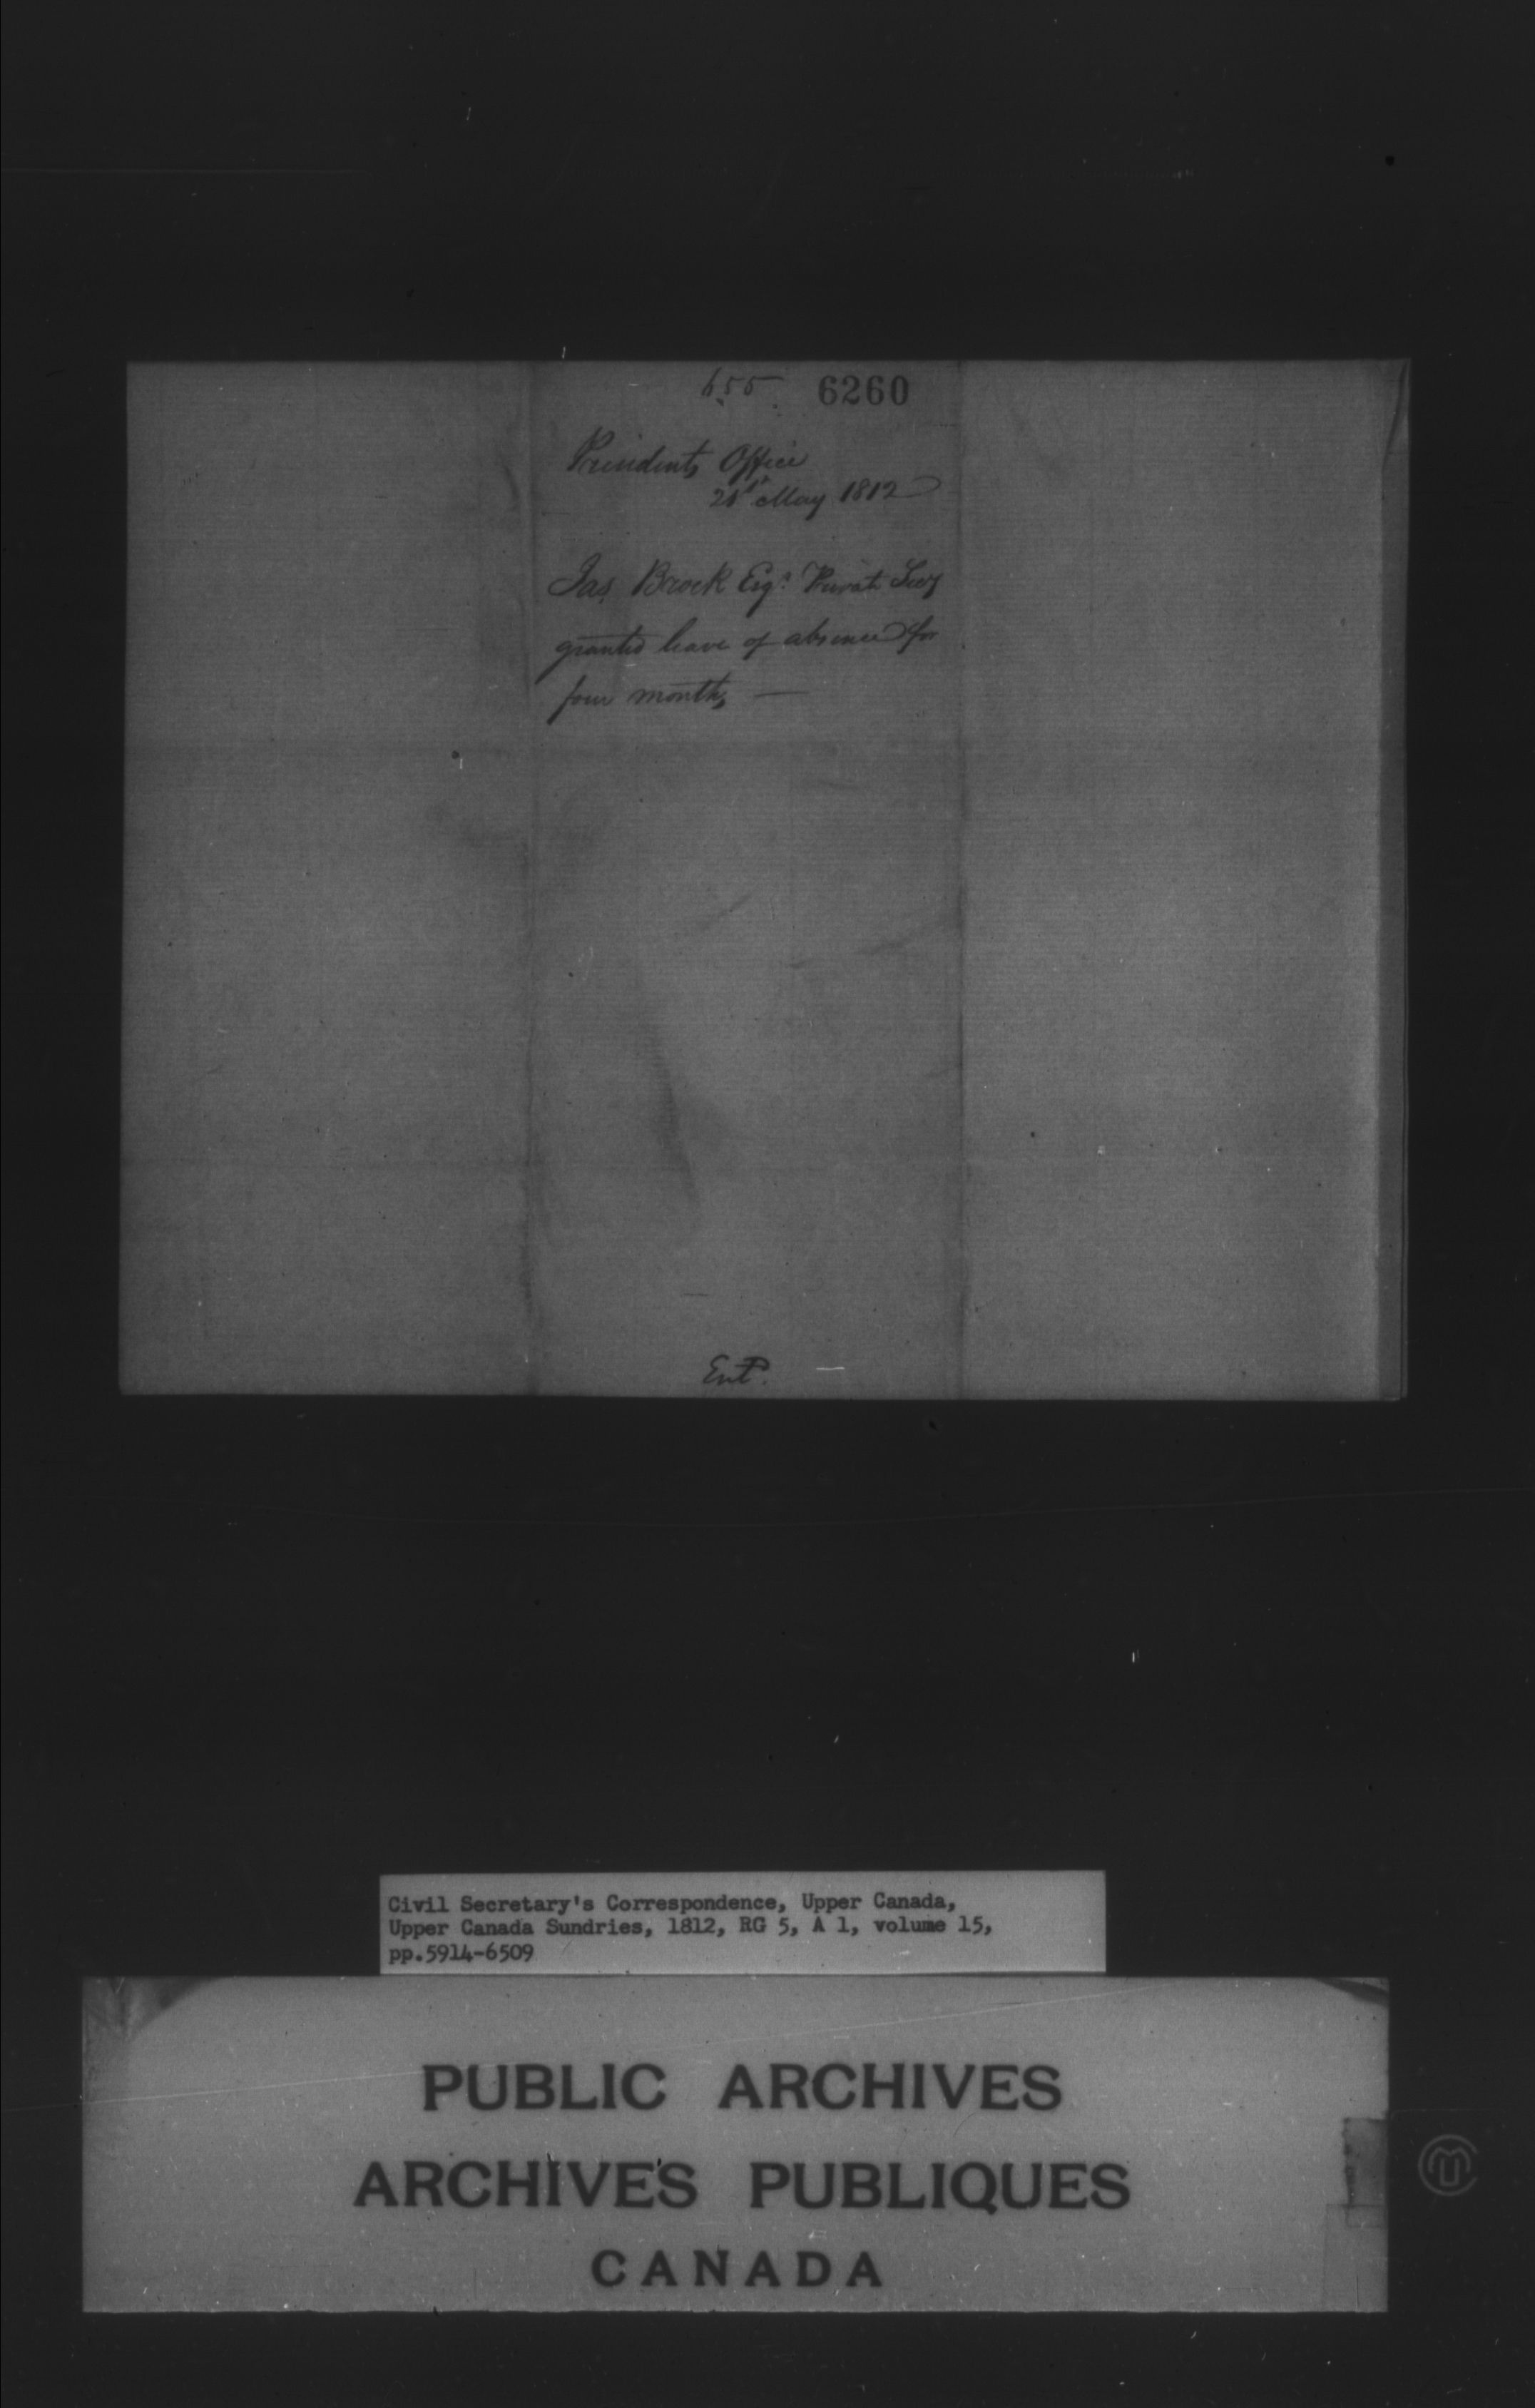 655 6260
Presidents Office
21st May 1812
Jas Brock Esqr Private Secy
granted leave of absence for
four months —
Entd.
Civil Secretary's Correspondence, Upper Canada,
Upper Canada Sundries, 1812, RG 5, A 1, volume 15,
pp.5914-6509
PUBLIC ARCHIVES
ARCHIVES PUBLIQUES
CANADA